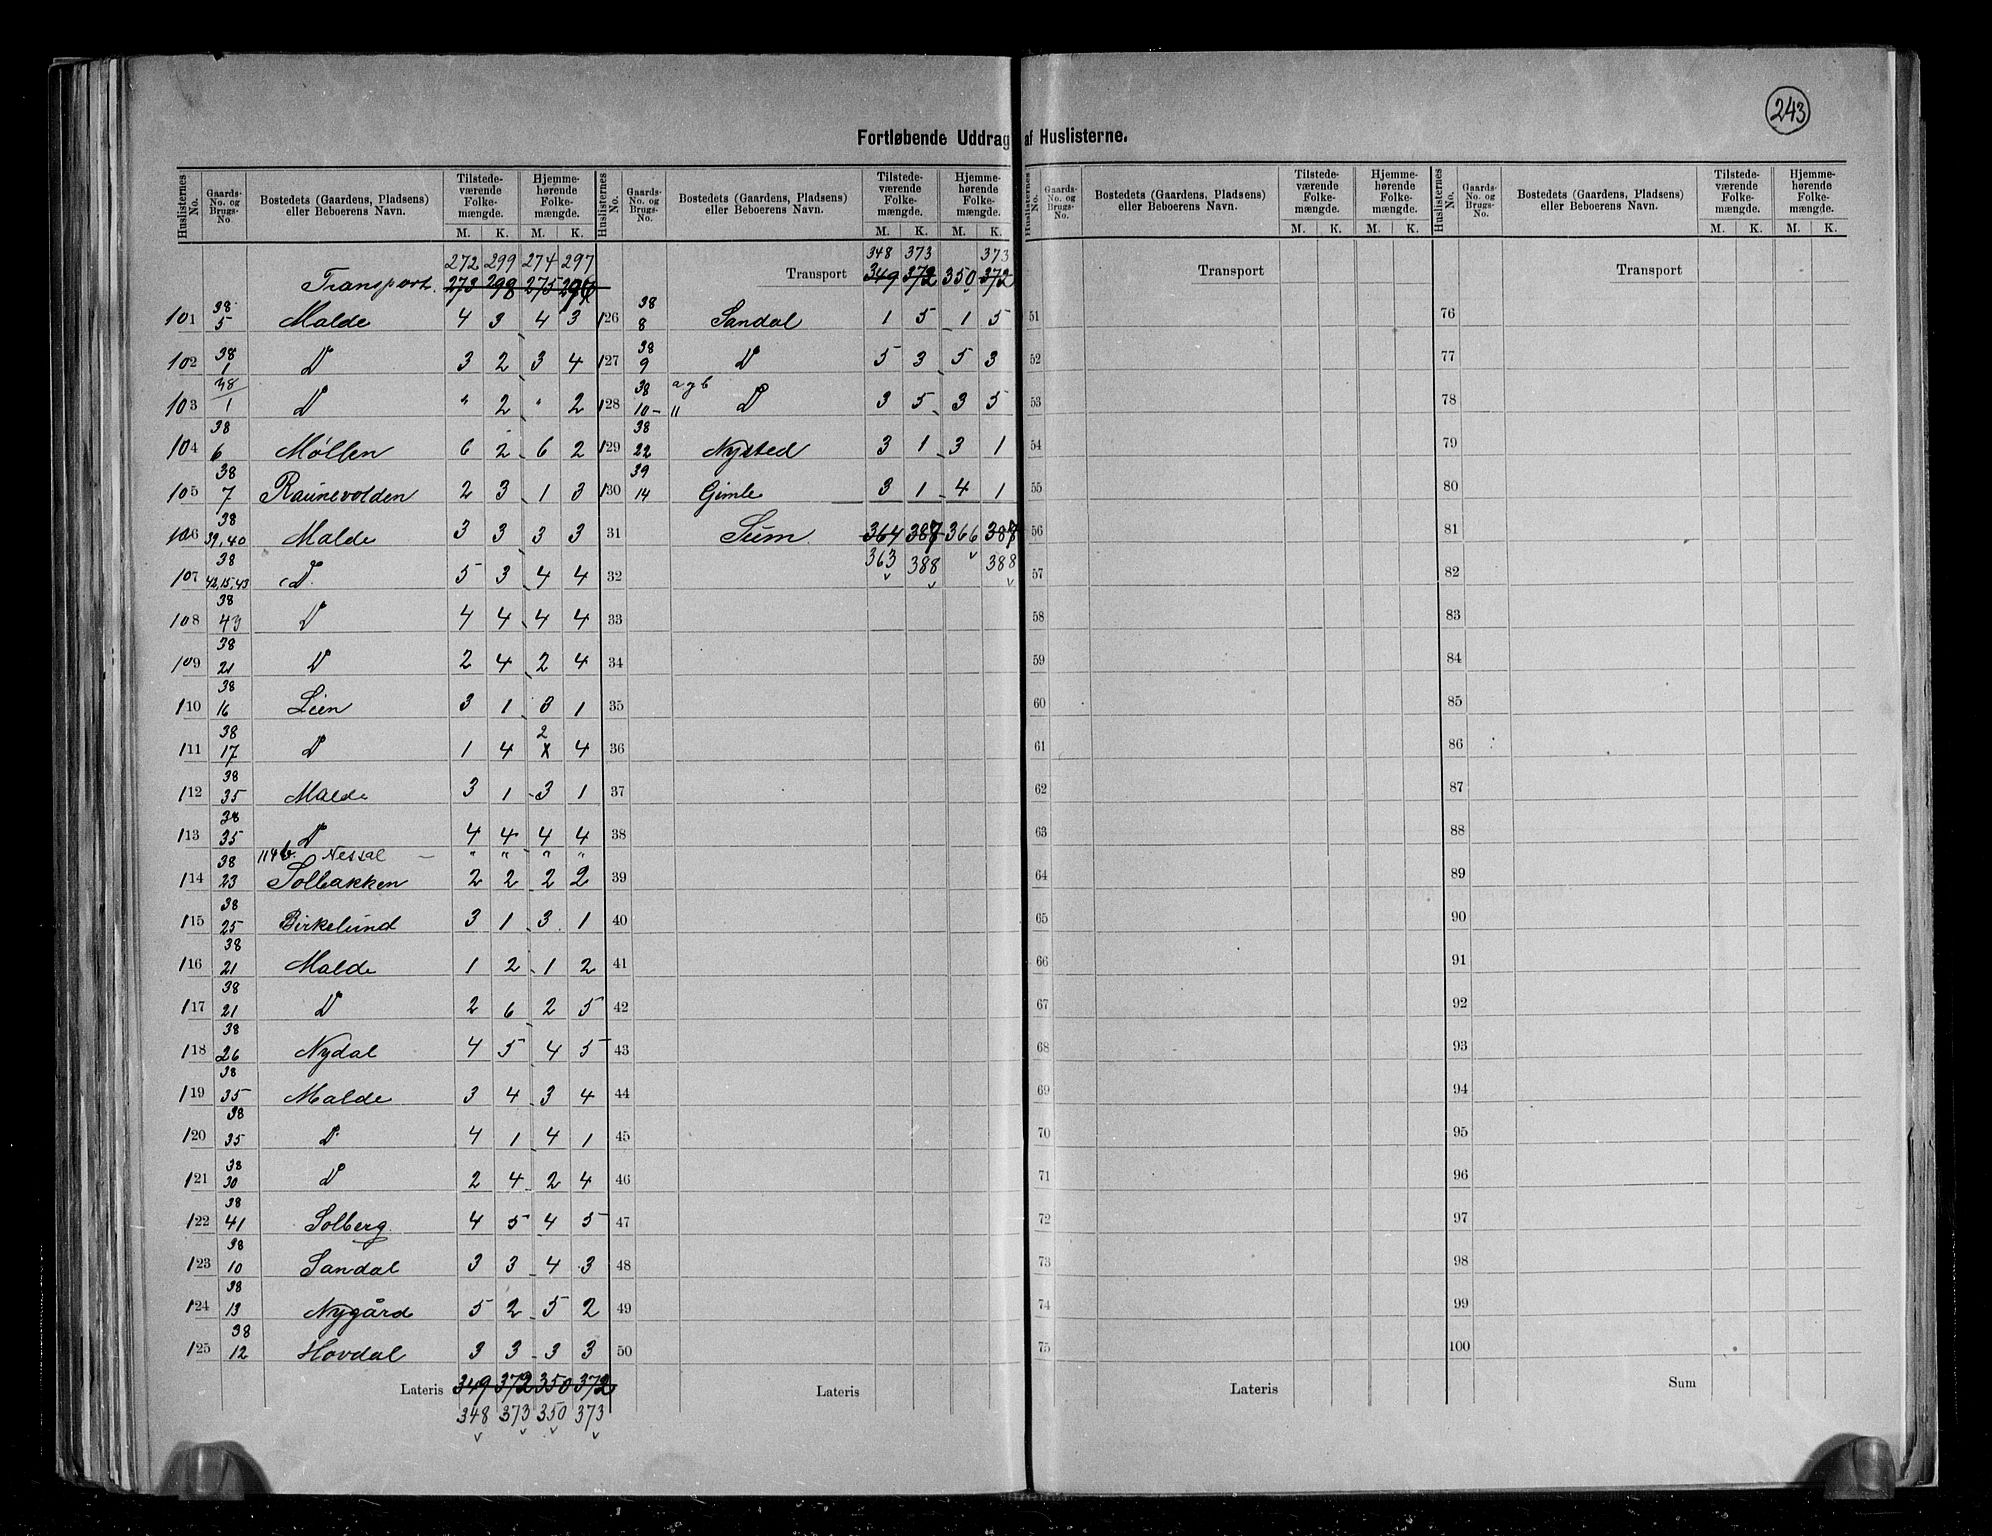 243
Fortløbende Uddrag af Huslisterne.
Huslisternes No. | Gaards-No. og Brugs-No. | Bostedets (Gaardens, Pladsens) eller Beboerens Navn. | Tilstedeværende Folkemængde. M. K. | Hjemmehørende Folkemængde. M. K.
272 299 274 297
Transport. 273 298 275 296
101 38 5 Malde 4 3 4 3
102 38 1 D 3 2 3 4
103 38 1 D " 2 " 2
104 38 6 Møllen 6 2 6 2
105 38 7 Raunevolden 2 3 1 3
106 38 39,40 Malde 3 3 3 3
107 38 42,15,43 D. 5 3 4 4
108 38 43 D 4 4 4 4
109 38 21 D 2 4 2 4
110 38 16 Lien 3 1 3 1
111 38 17 D 1 4 2 4
112 38 35 Malde 3 1 3 1
113 38 35 D 4 4 4 4
114b. Nessal – " " " "
114 38 23 Solbakken 2 2 2 2
115 38 25 Birkelund 3 1 3 1
116 38 21 Malde 1 2 1 2
117 38 21 D 2 6 2 5
118 38 26 Nydal 4 5 4 5
119 38 35 Malde 3 4 3 4
120 38 35 D 4 1 4 1
121 38 30 D 2 4 2 4
122 38 41 Solberg. 4 5 4 5
123 38 10 Sandal 3 3 4 3
124 38 13 Nygård 5 2 5 2
125 38 12 Hovdal 3 3 3 3
Lateris 349 372 350 372
348 373 350 373
Huslisternes No. | Gaards-No. og Brugs-No. | Bostedets (Gaardens, Pladsens) eller Beboerens Navn. | Tilstedeværende Folkemængde. M. K. | Hjemmehørende Folkemængde. M. K.
348 373 373
Transport 349 372 350 372
126 38 8 Sandal 1 5 1 5
127 38 9 D 5 3 5 3
128 38 10 – 11 D 3 5 3 5
129 38 22 Nysted 3 1 3 1
130 39 14 Gimle 3 1 4 1
31 Sum. 364 387 366 387
363 388 388
32
33
34
35
36
37
38
39
40
41
42
43
44
45
46
47
48
49
50
Lateris
Huslisternes No. | Gaards-No. og Brugs-No. | Bostedets (Gaardens, Pladsens) eller Beboerens Navn. | Tilstedeværende Folkemængde. M. K. | Hjemmehørende Folkemængde. M. K.
Transport
51
52
53
54
55
56
57
58
59
60
61
62
63
64
65
66
67
68
69
70
71
72
73
74
75
Lateris
Huslisternes No. | Gaards-No. og Brugs-No. | Bostedets (Gaardens, Pladsens) eller Beboerens Navn. | Tilstedeværende Folkemængde. M. K. | Hjemmehørende Folkemængde. M. K.
Transport
76
77
78
79
80
81
82
83
84
85
86
87
88
89
90
91
92
93
94
95
96
97
98
99
100
Sum